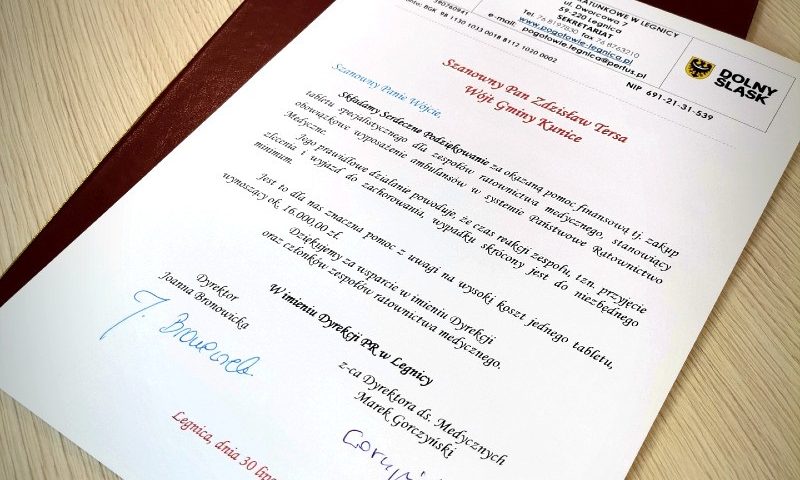 RATUNKOWE W LEGNICY
ul. Dworcowa 7
59-220 Legnica
SEKRETARIAT
390760941
98 1130 1033 0018 8112 1020 0002
www.pogotowie-legnica.pl
pogotowie.legnica@perfus.pl
NIP 691-21-31-539
DOLNY
ŚLĄSK
Szanowny Pan Zdzisław Tersa
Wójt Gminy Kunice
Szanowny Panie Wójcie,
Składamy Serdeczne Podziękowanie za okazaną pomoc finansową tj. zakup
tabletu specjalistycznego dla zespołów ratownictwa medycznego, stanowiący
obowiązkowe wyposażenie ambulansów w systemie Państwowe Ratownictwo
Medyczne.
Jego prawidłowe działanie powoduje, że czas reakcji zespołu, tzn. przyjęcie
zlecenia i wyjazd do zachorowania, wypadku skrócony jest do niezbędnego
minimum.
Jest to dla nas znaczna pomoc z uwagi na wysoki koszt jednego tabletu,
wynoszący ok. 16.000,00 zł.
Dziękujemy za wsparcie w imieniu Dyrekcji
oraz członków zespołów ratownictwa medycznego.
W imieniu Dyrekcji PR w Legnicy
Dyrektor
Joanna Bronowicka
J. Bronowicka
z-ca Dyrektora ds. Medycznych
Marek Gorczyński
Legnica, dnia 30